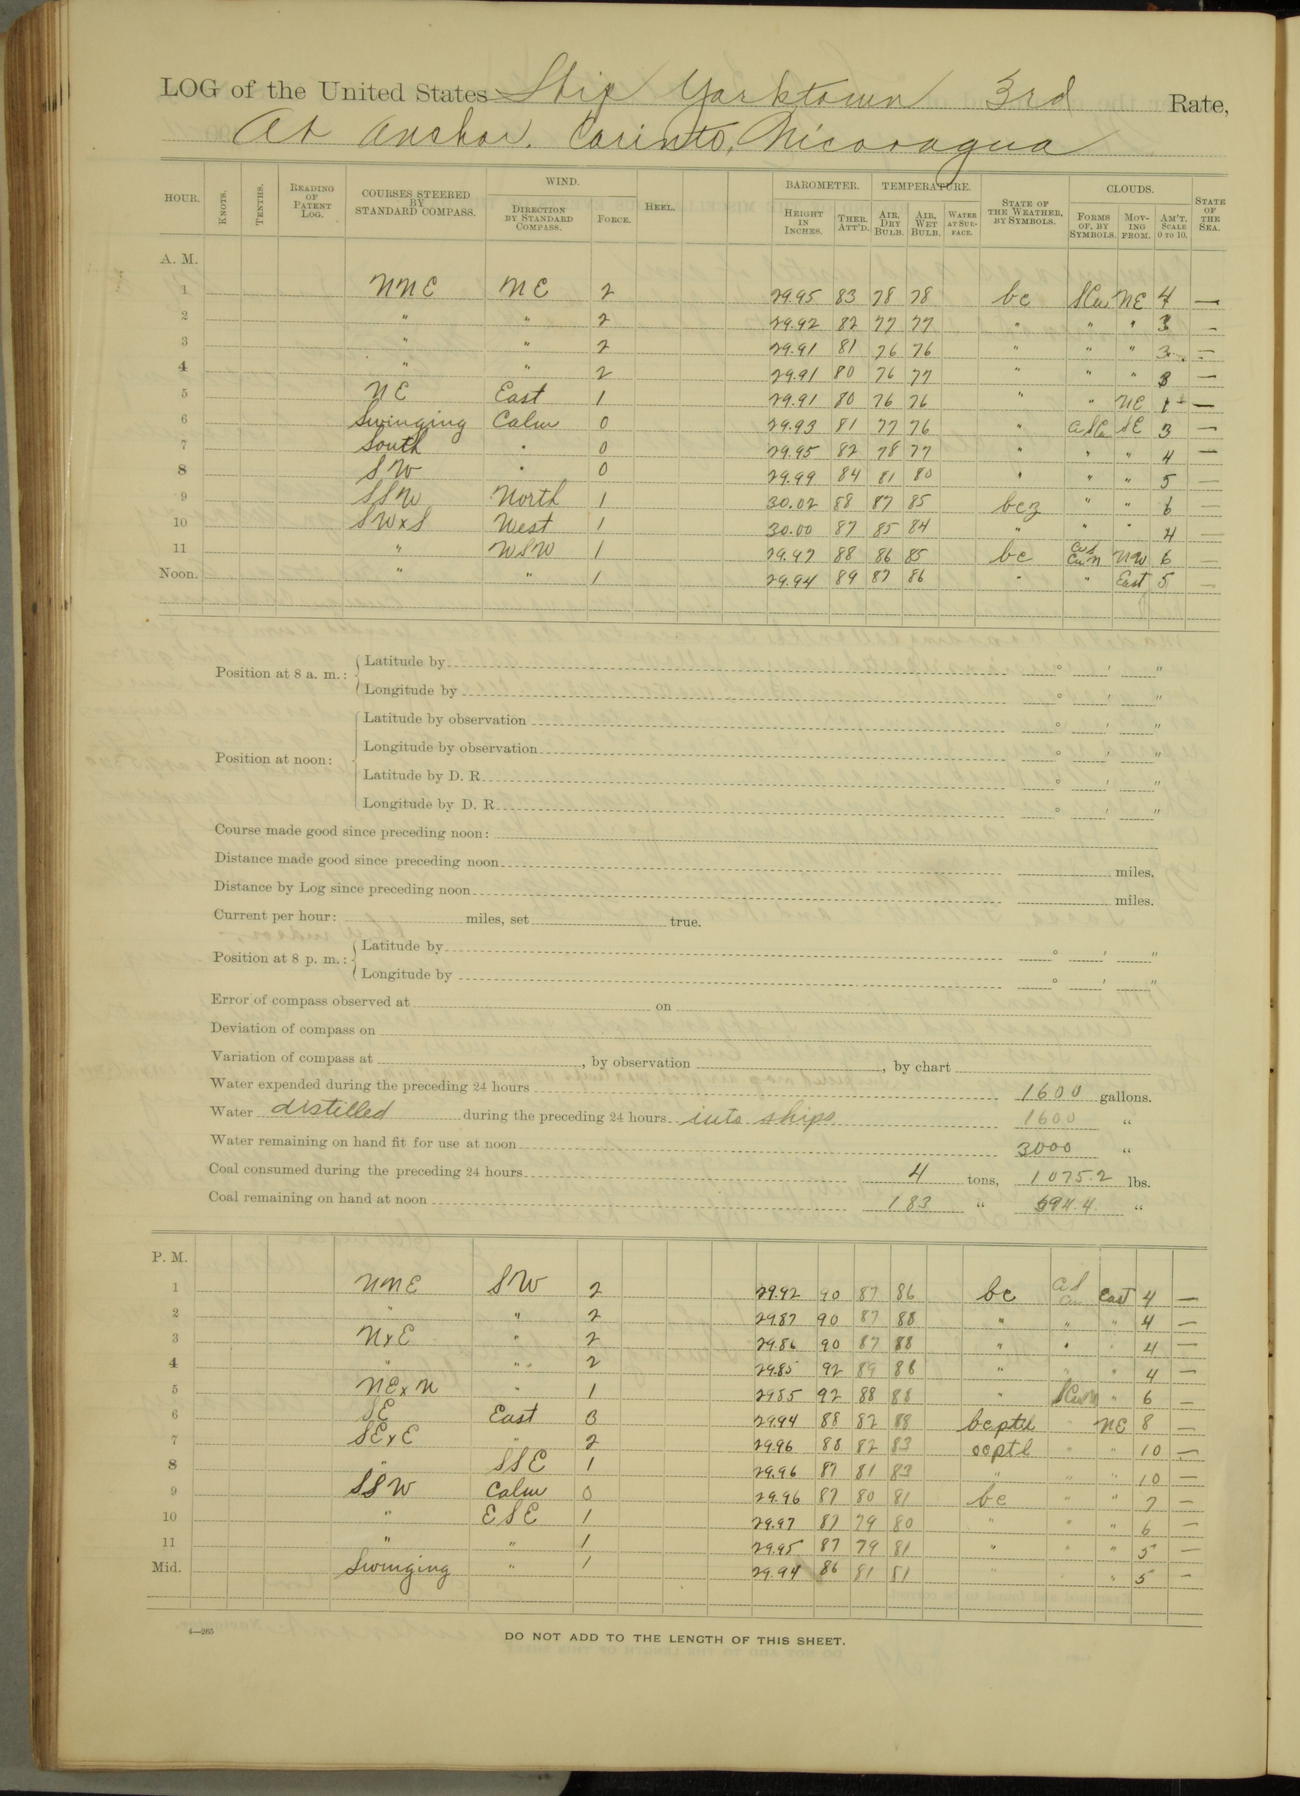 LOG of the United States Ship Yorktown 3rd Rate,
At anchor. Corinto, Nicaragua
HOUR. KNOTS. TENTHS. READING OF PATENT LOG. COURSES STEERED BY STANDARD COMPASS. WIND. DIRECTION BY STANDARD COMPASS. FORCE. HEEL. BAROMETER. HEIGHT IN INCHES. THER. ATT'D. TEMPERATURE. AIR, DRY BULB. AIR, WET BULB. WATER AT SUR-FACE. STATE OF THE WEATHER, BY SYMBOLS. CLOUDS. FORMS OF, BY SYMBOLS. MOV-ING FROM. AM'T. SCALE 0 TO 10. STATE OF THE SEA.
A. M.
1 NNE NE 2 29.95 83 78 78 bc SCu NE 4 —
2 " " 2 29.92 82 77 77 " " " 3 —
3 " " 2 29.91 81 76 76 " " " 3 —
4 " " 2 29.91 80 76 77 " " " 3 —
5 NE East 1 29.91 80 76 76 " " NE 1 —
6 Swinging Calm 0 29.93 81 77 76 " SE 3 —
7 South " 0 29.95 82 78 77 " " " 4 —
8 SW " 0 29.99 84 81 80 " " " 5 —
9 SSW North 1 30.02 88 87 85 bcz " " 6 —
10 SWxS West 1 30.00 87 85 84 " " " 4 —
11 " WSW 1 29.97 88 86 85 bc CuN NW 6 —
Noon. " " 1 29.94 89 87 86 " " East 5 —
Position at 8 a. m.: Latitude by ° ' "
Longitude by ° ' "
Position at noon: Latitude by observation ° ' "
Longitude by observation ° ' "
Latitude by D. R. ° ' "
Longitude by D. R. ° ' "
Course made good since preceding noon:
Distance made good since preceding noon miles.
Distance by Log since preceding noon miles.
Current per hour: miles, set true.
Position at 8 p. m.: Latitude by ° ' "
Longitude by ° ' "
Error of compass observed at on
Deviation of compass on
Variation of compass at , by observation , by chart
Water expended during the preceding 24 hours 1600 gallons.
Water distilled during the preceding 24 hours into ships 1600 "
Water remaining on hand fit for use at noon 3000 "
Coal consumed during the preceding 24 hours 4 tons, 1075.2 lbs.
Coal remaining on hand at noon 183 " 594.4 "
P. M.
1 NNE SW 2 29.92 90 87 86 bc East 4 —
2 " " 2 29.87 90 87 88 " " " 4 —
3 NxE " 2 29.86 90 87 88 " " " 4 —
4 " " 2 29.85 92 89 88 " " " 4 —
5 NExN " 1 29.85 92 88 88 " " 6 —
6 SE East 3 29.94 88 82 88 bcptl " NE 8 —
7 SExE " 2 29.96 88 82 83 ocptl " " 10 —
8 " SSE 1 29.96 87 81 83 " " " 10 —
9 SSW Calm 0 29.96 87 80 81 bc " " 7 —
10 " ESE 1 29.97 87 79 80 " " " 6 —
11 " " 1 29.95 87 79 81 " " " 5 —
Mid. Swinging " 1 29.94 86 81 81 " " " 5 —
4—265
DO NOT ADD TO THE LENGTH OF THIS SHEET.